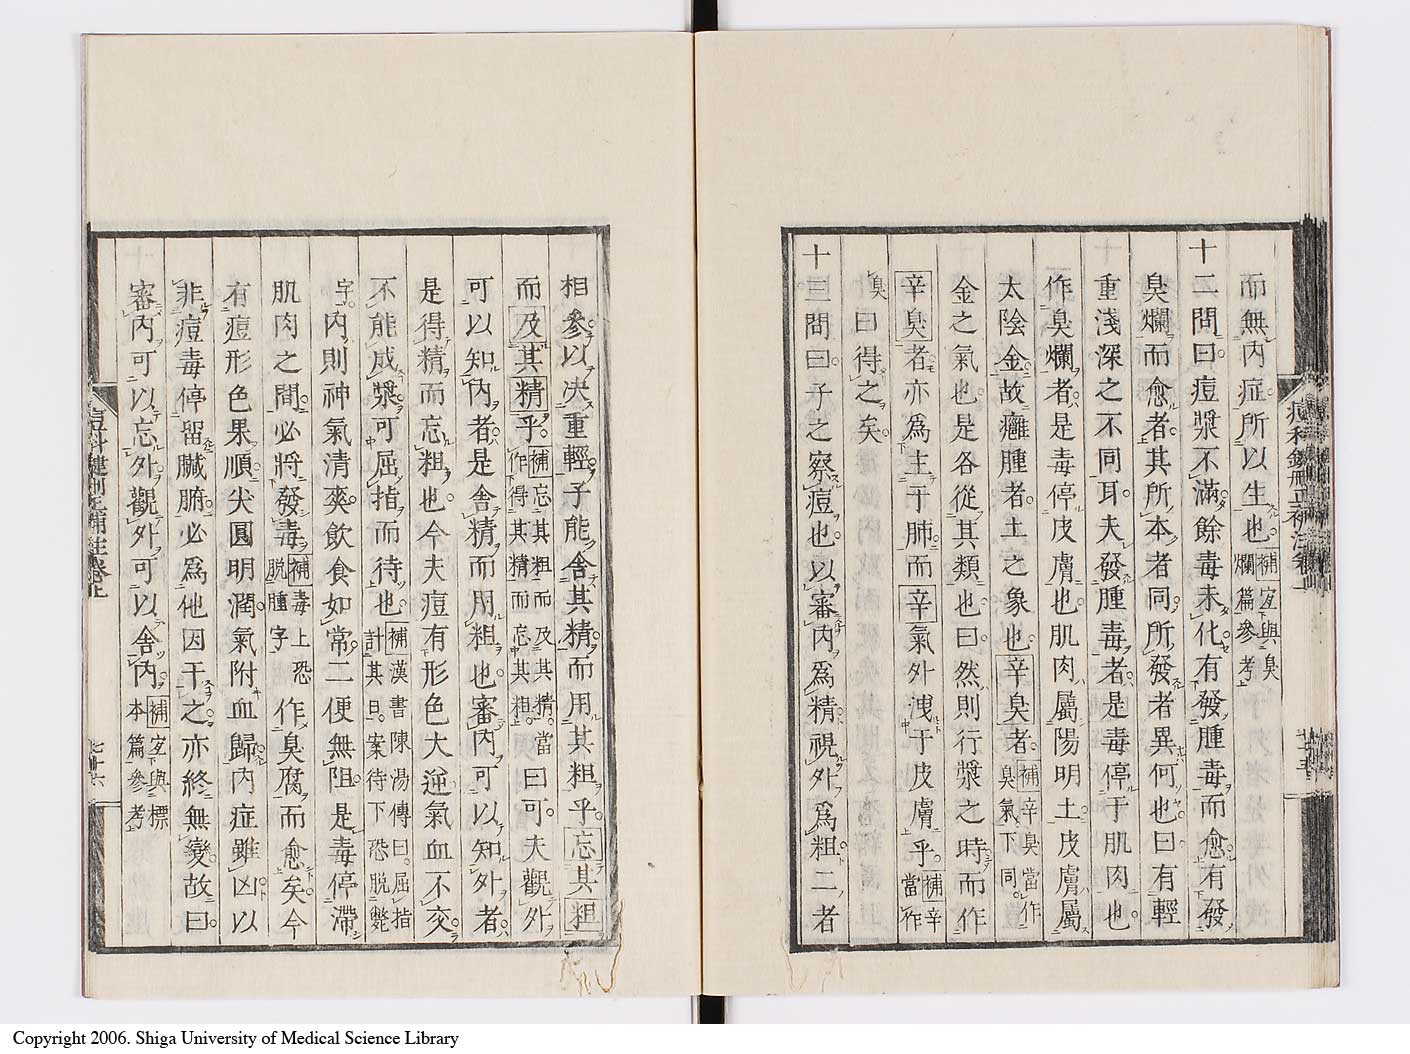 而無內症所以生也補宜與臭爛篇參考
十二問曰痘漿不滿餘毒未化有發腫毒而愈有發
臭爛而愈者其所本者同所發者異何也曰有輕
重淺深之不同耳夫發腫毒者是毒停于肌肉也
作臭爛者是毒停皮膚也肌肉屬陽明土皮膚屬
太陰金故癰腫者土之象也辛臭者補辛臭當作臭氣下同
金之氣也是各從其類也曰然則行漿之時而作
辛臭者亦爲主于肺而辛氣外洩于皮膚乎補辛當作
臭曰得之矣
十三問曰子之察痘也以審內爲精視外爲粗二者
相參以决重輕子能舍其精而用其粗乎忘其粗
而及其精乎補忘其粗而及其精當作得其精而忘其粗曰可夫觀外
可以知內者是舍精而用粗也審內可以知外者
是得精而忘粗也今夫痘有形色大逆氣血不交
不能成漿可屈指而待也補漢書陳湯傳曰屈指計其日案待下恐脫斃
字內則神氣清爽飲食如常二便無阻是毒停滯
肌肉之間必將發毒補毒上恐脫腫字作臭腐而愈矣今
有痘形色果順尖圓明潤氣附血歸內症雖凶以
非痘毒停留臟腑必爲他因干之亦終無變故曰
審內可以忘外觀外可以舍內補宜與標本篇參考
七十六
Copyright 2006. Shiga University of Medical Science Library